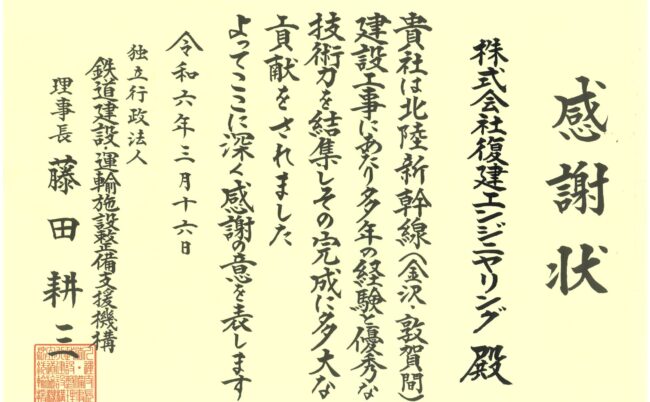 感謝状
株式会社復建エンジニヤリング 殿
貴社は北陸新幹線(金沢・敦賀間)
建設工事にあたり多年の経験と優秀な
技術力を結集しその完成に多大な
貢献をされました
よってここに深く感謝の意を表します
令和六年三月十六日
独立行政法人
鉄道建設・運輸施設整備支援機構
理事長 藤田耕三